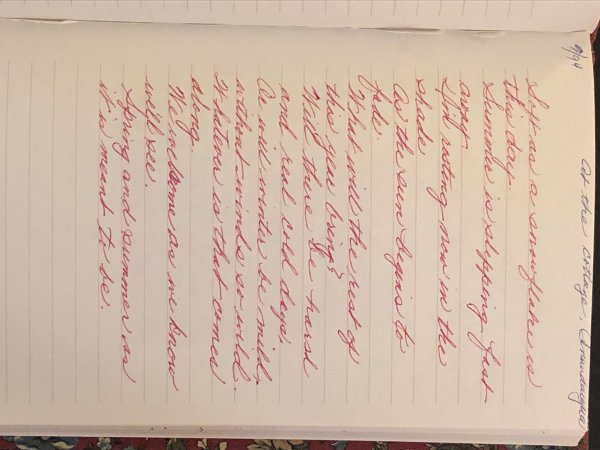 9/94
At the cottage,
Soft as a snowflake is
this day.
Summer is slipping fast
away
Still resting now in the
shade
As the sun begins to
fade.
What will the rest of
this year bring?
Will there be hard
and real cold days,
Or will winter be mild,
without winds so wild.
Whatever is that comes
along
We welcome as we know
we'll see.
Spring and summer as
it is meant to be.